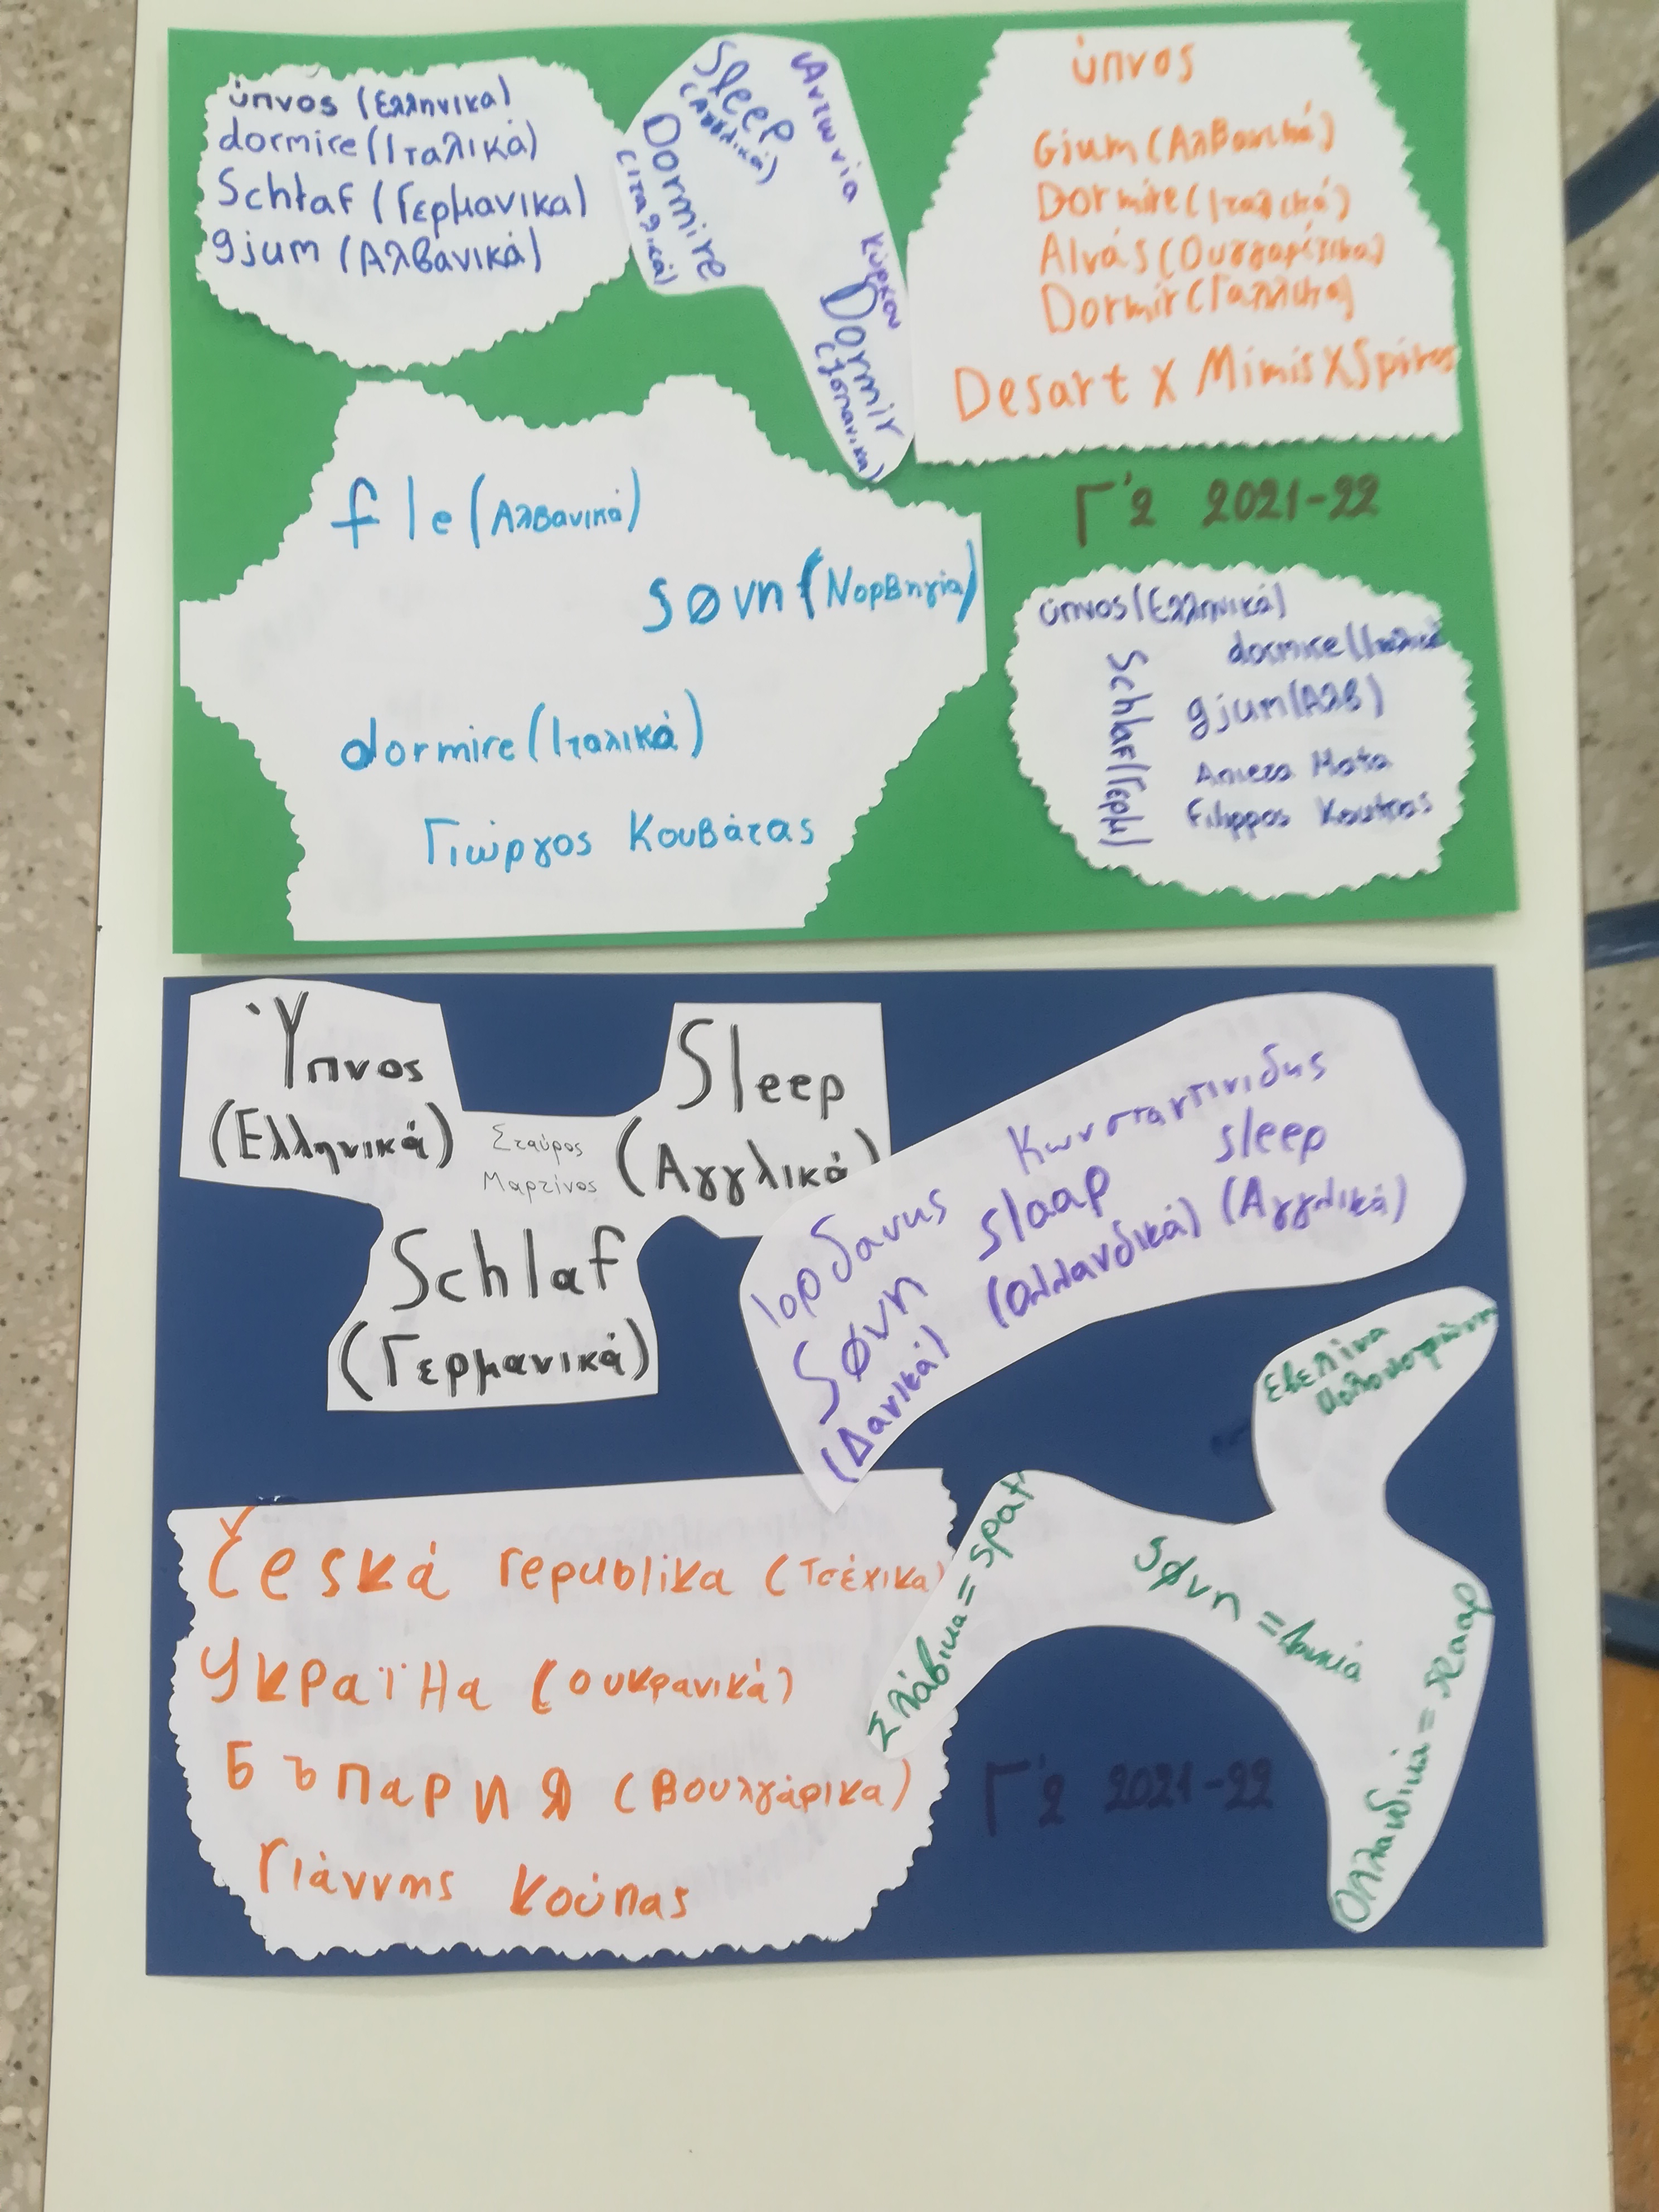 ύπνος (Ελληνικα)
dormire (Ιταλικά)
Schlaf (Γερμανικα)
gjum (Αλβανικά)
Sleep
(Αγγλικά)
Dormire
(ιταλικά)
Αντωνία Κύρκου
Dormir
(ισπανικα)
ύπνος
Gjum (Αλβανικά)
Dormire (Ιταλικά)
Alvás (Ουγγαρέζικα)
Dormir (Γαλλικα)
Desart X Mimis X Spiros
fle (Αλβανικά)
søvn (Νορβηγία)
dormire (Ιταλικά)
Γιώργος Κουβάτας
Γ'2 2021-22
ύπνος (Ελληνικά)
dormire (Ιταλικά
Schlaf (Γερμ)
gjum (Αλβ)
Filippos Koutras
Ύπνος
(Ελληνικά)
Sleep
(Αγγλικά)
Σταύρος
Μαρτίνος
Schlaf
(Γερμανικά)
Ιορδανης Κωνσταντινιδης
Søvn slaap sleep
(Δανικά) (ολλανδικά) (Αγγλικά)
Εβελίνα
Σλάβικα = spat
Søvn = Δανία
Ολλανδικά = slaap
Česká republika (Τσέχικα)
Україна (ουκρανικά)
Бъпария (Βουλγάρικα)
Γιάννης Κούπας
Γ'2 2021-22